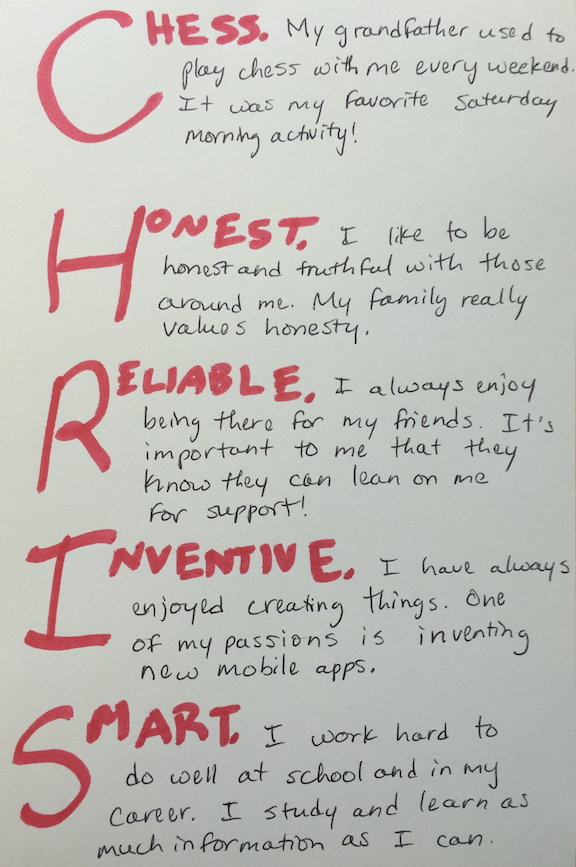 CHESS. My grandfather used to
play chess with me every weekend.
It was my favorite saturday
morning activity!
HONEST. I like to be
honest and truthful with those
around me. My family really
values honesty.
RELIABLE. I always enjoy
being there for my friends. It's
important to me that they
know they can lean on me
for support!
INVENTIVE. I have always
enjoyed creating things. One
of my passions is inventing
new mobile apps.
SMART. I work hard to
do well at school and in my
career. I study and learn as
much information as I can.